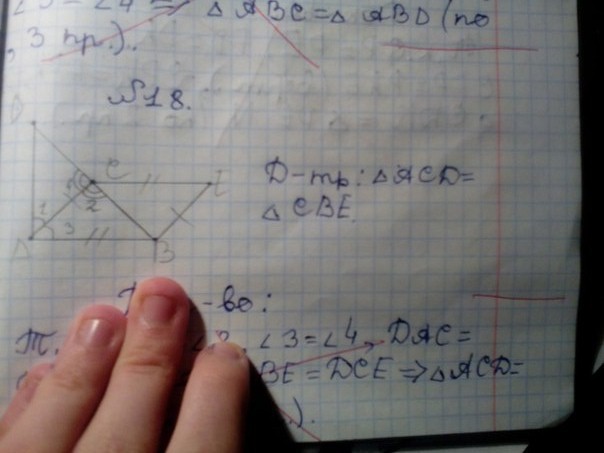 ∠3=∠4 ⇒ △ABC=△ABD (по
3 пр.).
№18.
D
C E
1 2
3
A B
Д-ть: △ACD=
△CBE.
-во:
Т. ∠2, ∠3=∠4, DAC=
BE=DCE⇒△ACD=
).